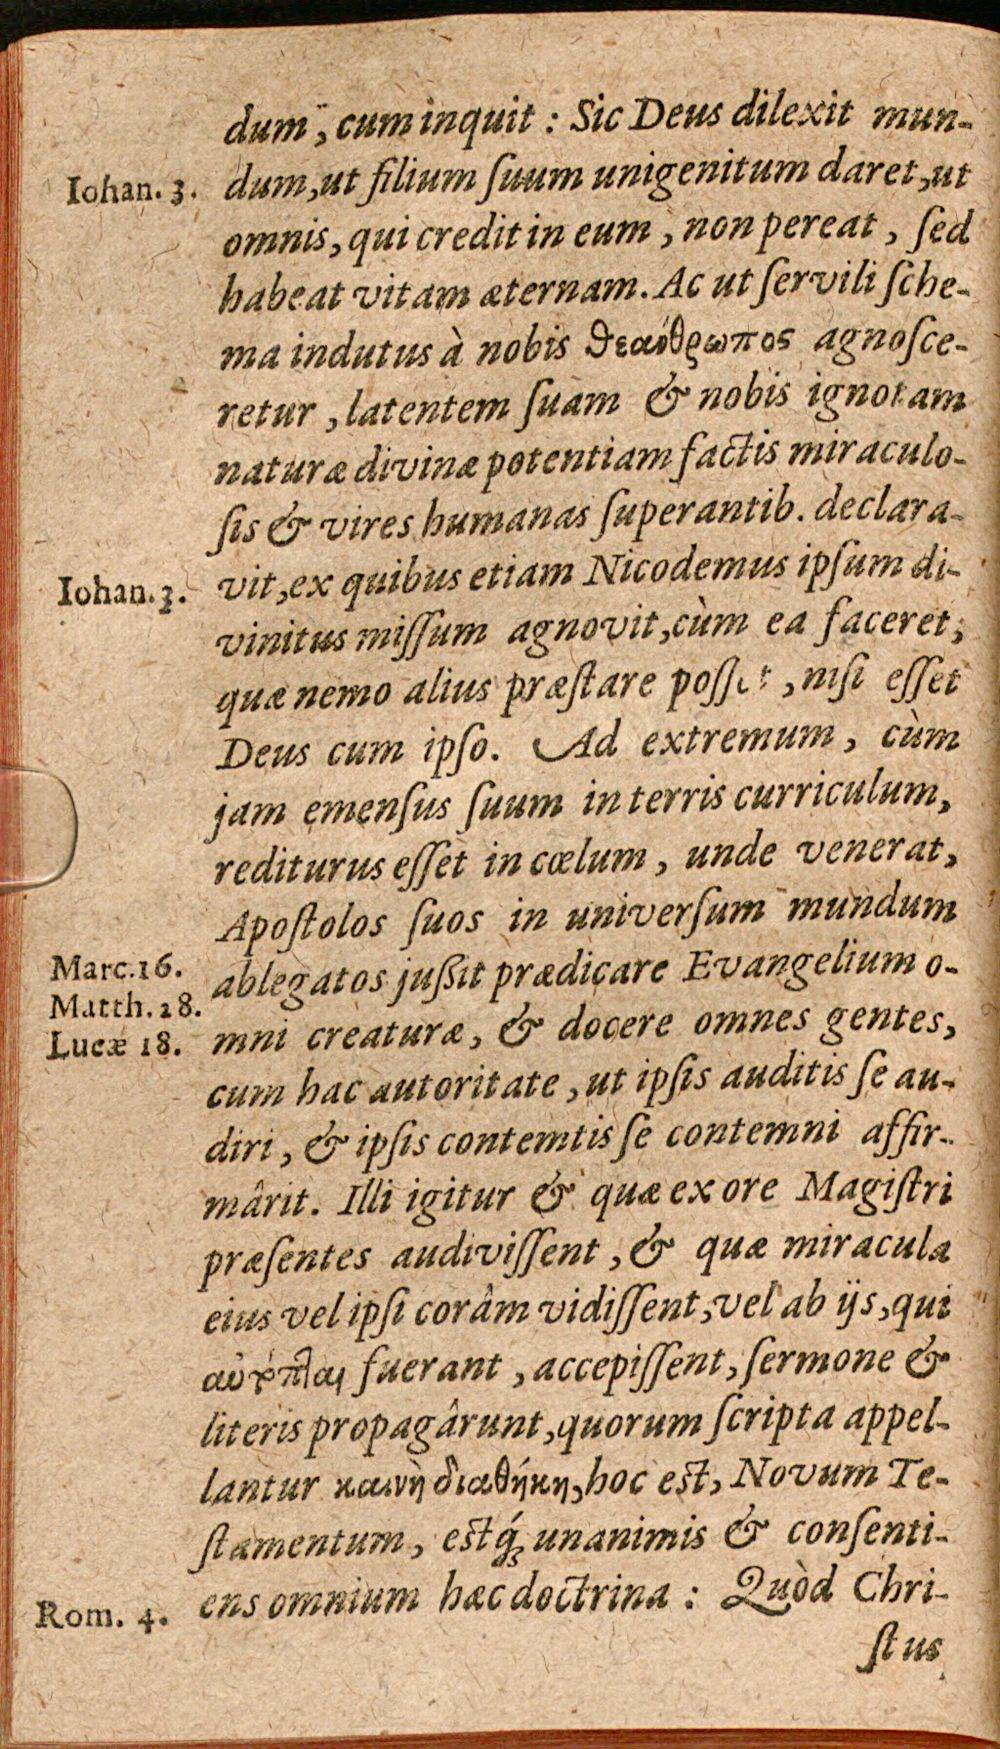 dum, cum inquit : Sic Deus dilexit mun-
Iohan. 3. dum, ut filium ſuum unigenitum daret, ut
omnis, qui credit in eum, non pereat, ſed
habeat vitam æternam. Ac ut ſervili ſche-
ma indutus à nobis θεάνθρωπος agnoſce-
retur, latentem ſuam & nobis ignotam
naturæ divinæ potentiam factis miraculo-
ſis & vires humanas ſuperantib. declara-
Iohan. 3. vit, ex quibus etiam Nicodemus ipſum di-
vinitus miſſum agnovit, cùm ea faceret,
quæ nemo alius præſtare poſſet, niſi eſſet
Deus cum ipſo. Ad extremum, cùm
jam emenſus ſuum in terris curriculum,
rediturus eſſet in cœlum, unde venerat,
Apoſtolos ſuos in univerſum mundum
Marc. 16. ablegatos juſſit prædicare Evangelium o-
Matth. 28.
Lucæ 18. mni creaturæ, & docere omnes gentes,
cum hac autoritate, ut ipſis auditis ſe au-
diri, & ipſis contemtis ſe contemni affir-
mârit. Illi igitur & quæ ex ore Magiſtri
præſentes audiviſſent, & quæ miracula
eius vel ipſi corâm vidiſſent, vel ab ijs, qui
αὐτόπται fuerant, accepiſſent, ſermone &
literis propagârunt, quorum ſcripta appel-
lantur καινὴ διαθήκη, hoc eſt, Novum Te-
ſtamentum, eſtq́; unanimis & conſenti-
Rom. 4. ens omnium hæc doctrina : Quòd Chri-
ſtus